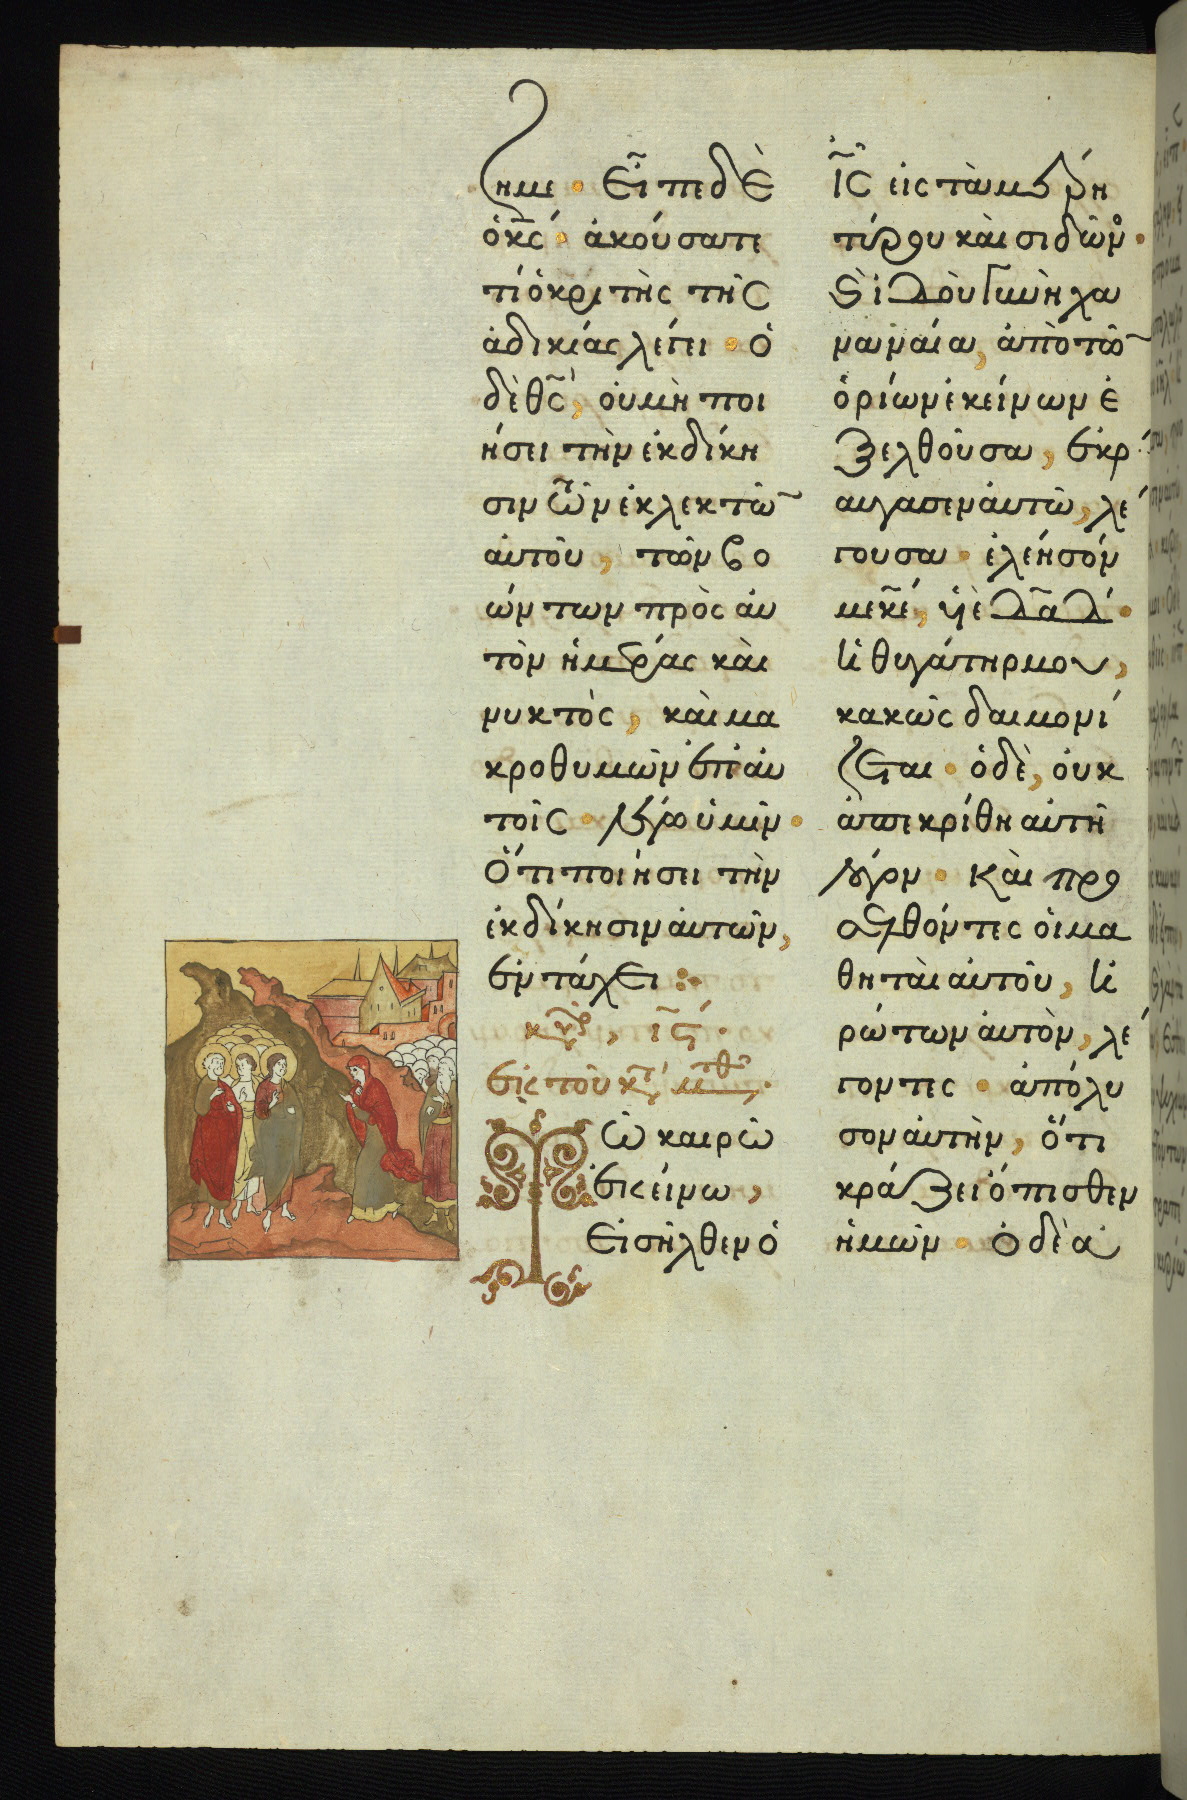 ζημε· Εἶπε δὲ
ὁ κ̅ς̅· ἀκούσατε
τί ὁ κριτὴς τῆς
ἀδικίας λέγει· ὁ
δὲ θ̅ς̅, οὐ μὴ ποι
ήσει τὴν ἐκδίκη
σιν τῶν ἐκλεκτῶ
αὐτοῦ, τῶν βο
ών των πρὸς αὐ
τὸν ἡμέρας καὶ
νυκτὸς, καὶ μα
κροθυμῶν ἐπ' αὐ
τοῖς· λέγω ὑμῖν·
Ὅτι ποιήσει τὴν
ἐκδίκησιν αὐτῶν,
ἐν τάχει:
ἐκ τοῦ κ̅τ̅ μ̅τ̅θ̅.
Τῶ καιρῶ
ἐκείνω,
Εἰσῆλθεν ὁ
ι̅ς̅ εἰς τὰ μέρη
τύρου καὶ σιδῶν·
καὶ ἰδοὺ γυνὴ χα
ναναία, ἀπὸ τῶ
ὁρίων ἐκείνων ἐ
ξελθοῦσα, ἐκρ
αύγασεν αὐτῶ, λέ
γουσα· ἐλέησόν
με κ̅ε̅, υ̅ὲ δ̅α̅δ̅·
ἡ θυγάτηρ μου,
κακῶς δαιμονί
ζεται· ὁ δὲ, οὐκ
ἀπεκρίθη αὐτῆ
λόγον· Καὶ προ
σελθόντες οἱ μα
θηταὶ αὐτοῦ, ἠ
ρώτων αὐτὸν, λέ
γοντες· ἀπόλυ
σον αὐτὴν, ὅτι
κράζει ὄπισθεν
ἡμῶν· ὁ δὲ ἀ